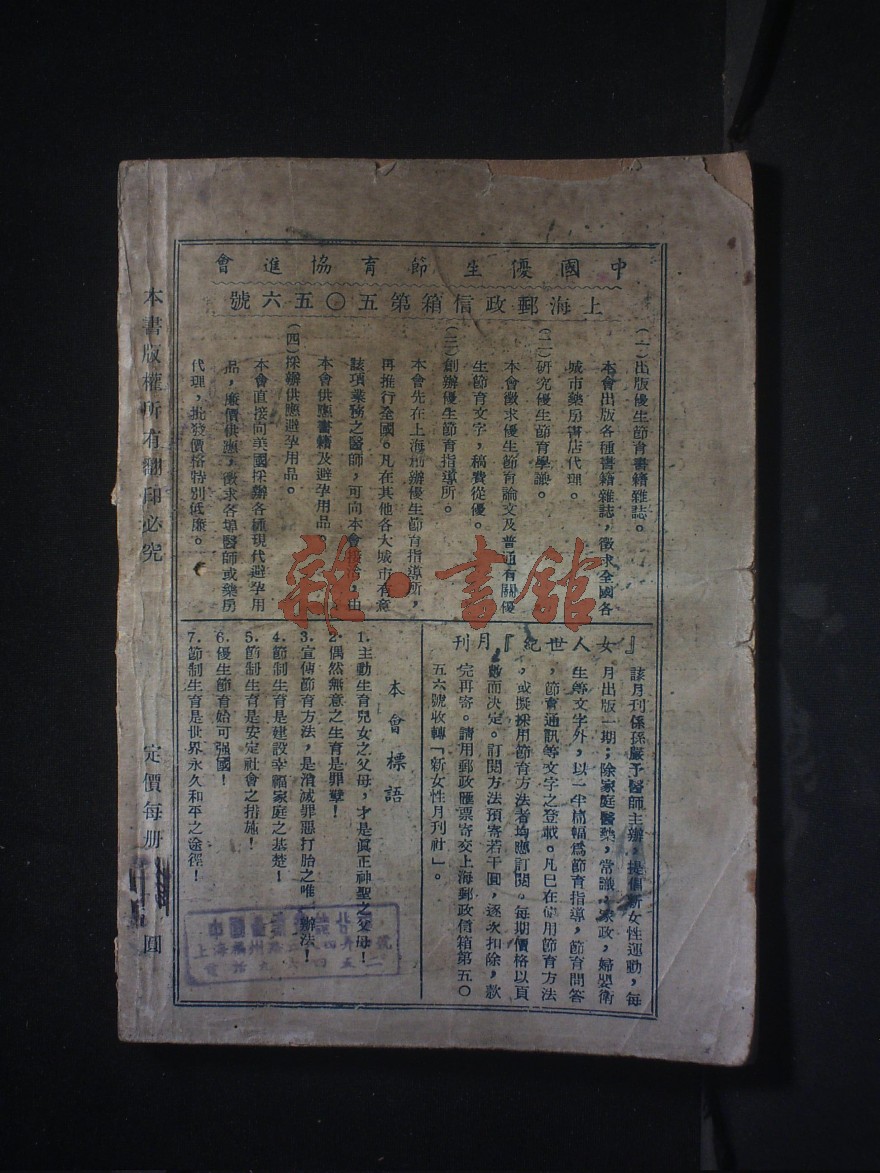 中國優生節育協進會
上海郵政信箱第五〇五六號
(一)出版優生節育書籍雜誌。
本會出版各種書籍雜誌,徵求全國各
城市藥房書店代理。
(二)研究優生節育學識。
本會徵求優生節育論文及普通有關優
生節育文字,稿費從優。
(三)創辦優生節育指導所。
本會先在上海創辦優生節育指導所,
再推行全國。凡在其他各大城市有意
該項業務之醫師,可向本會接洽,由
本會供應書籍及避孕用品。
(四)採辦供應避孕用品。
本會直接向美國採辦各種現代避孕用
品,廉價供應,徵求各埠醫師或藥房
代理,批發價格特別低廉。
『女人世紀』月刊
該月刊係孫嚴予醫師主辦,提倡新女性運動,每
月出版一期;除家庭醫藥,常識,家政,婦嬰衛
生等文字外,以一半篇幅爲節育指導,節育問答
,節育通訊等文字之登載。凡已在使用節育方法
,或擬採用節育方法者均應訂閱。每期價格以頁
數而決定。訂閱方法預寄若干圓,逐次扣除,款
完再寄。請用郵政匯票寄交上海郵政信箱第五〇
五六號收轉「新女性月刊社」。
本會標語
1.主動生育兒女之父母,才是眞正神聖之父母!
2.偶然無意之生育是罪孽!
3.宣傳節育方法,是消滅罪惡打胎之唯一辦法!
4.節制生育是建設幸福家庭之基楚!
5.節制生育是安定社會之措施!
6.優生節育始可强國!
7.節制生育是世界永久和平之途徑!
本書版權所有翻印必究
定價每册 圓
雜·書館